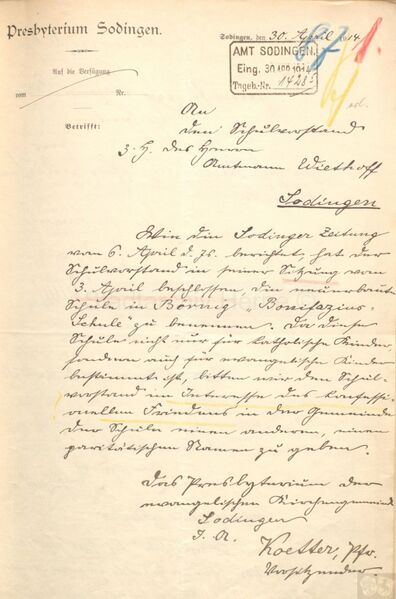 Presbyterium Sodingen.
Sodingen, den 30. April 1914.
AMT SODINGEN.
Eing. 30 APR 1914
Tageb.-Nr. 1428
Auf die Verfügung
vom Nr.
Betrifft:
An
den Schulvorstand
z. H. des Herrn
Amtmann Wiethoff
Sodingen
Wie die Sodinger Zeitung
vom 6. April d. Js. berichtet, hat der
Schulvorstand in seiner Sitzung vom
3. April beschlossen, die neuerbaute
Schule in Börnig „Bonifazius-
Schule" zu benennen. Da diese
Schule nicht nur für katholische Kinder,
sondern auch für evangelische Kinder
bestimmt ist, bitten wir den Schul-
vorstand im Interesse des konfessio-
nellen Friedens in der Gemeinde
der Schule einen anderen, einen
paritätischen Namen zu geben.
Das Presbyterium der
evangelischen Kirchengemeinde
Sodingen
I. A.
Koetter, Pfr.
Vorsitzender